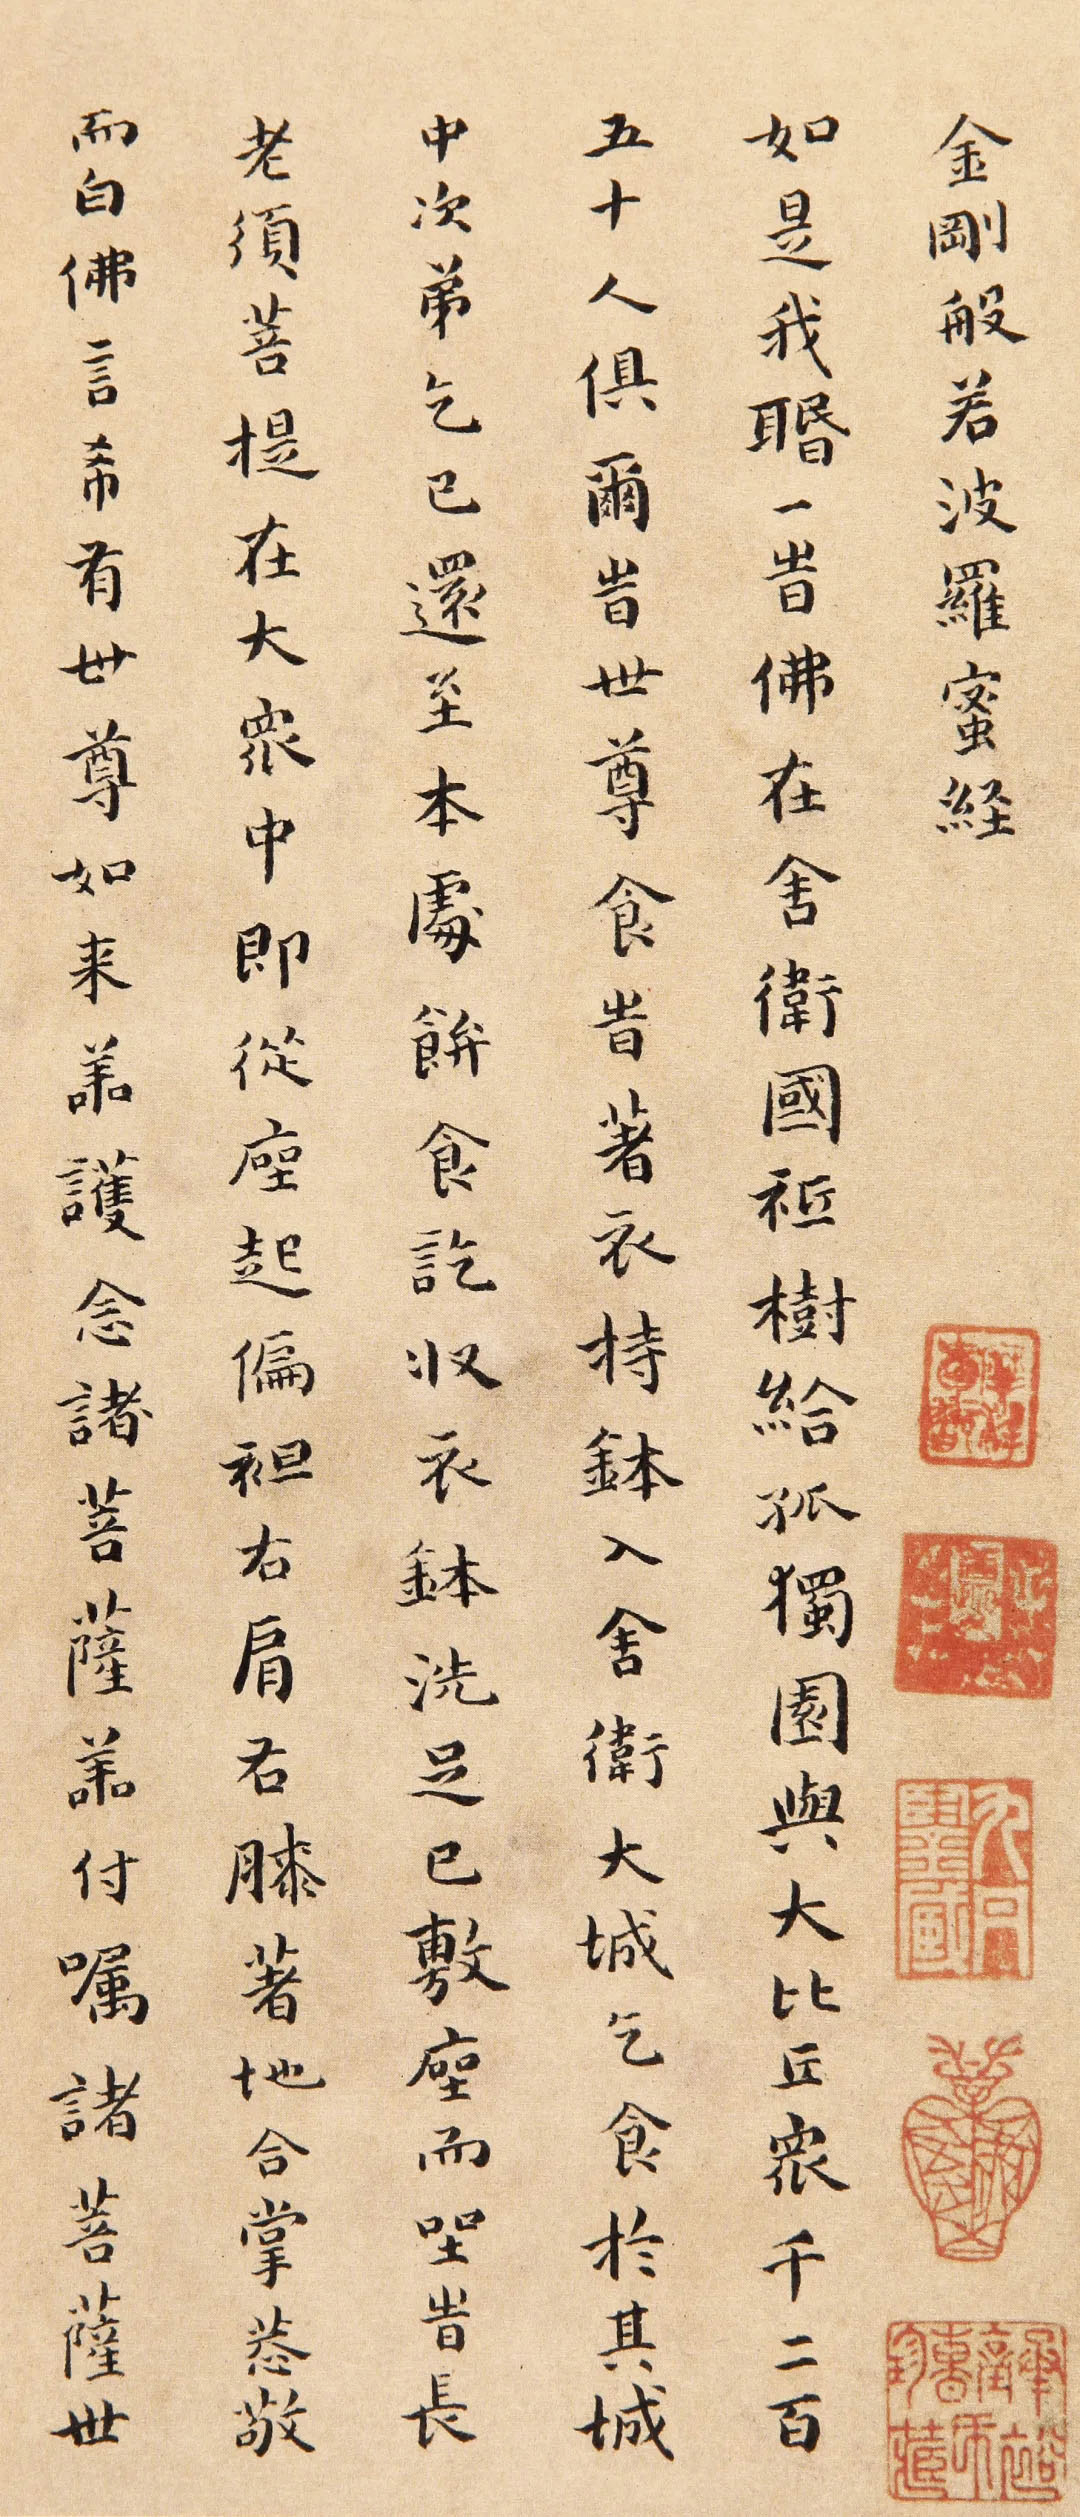 金剛般若波羅蜜経
如是我聞一旹佛在舍衛國祇樹給孤獨園與大比丘眾千二百
五十人俱爾旹世尊食旹著衣持鉢入舍衛大城乞食於其城
中次第乞已還至本處飯食訖收衣鉢洗足已敷座而坐旹長
老須菩提在大眾中即從座起偏袒右肩右膝著地合掌恭敬
而白佛言希有世尊如来善護念諸菩薩善付囑諸菩薩世